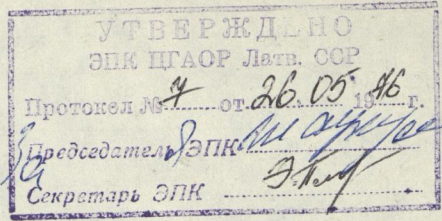 УТВЕРЖДЕНО
ЭПК ЦГАОР Латв. ССР
Протокол № 7 от 26.05 1976 г.
За Председателя ЭПК
Секретарь ЭПК